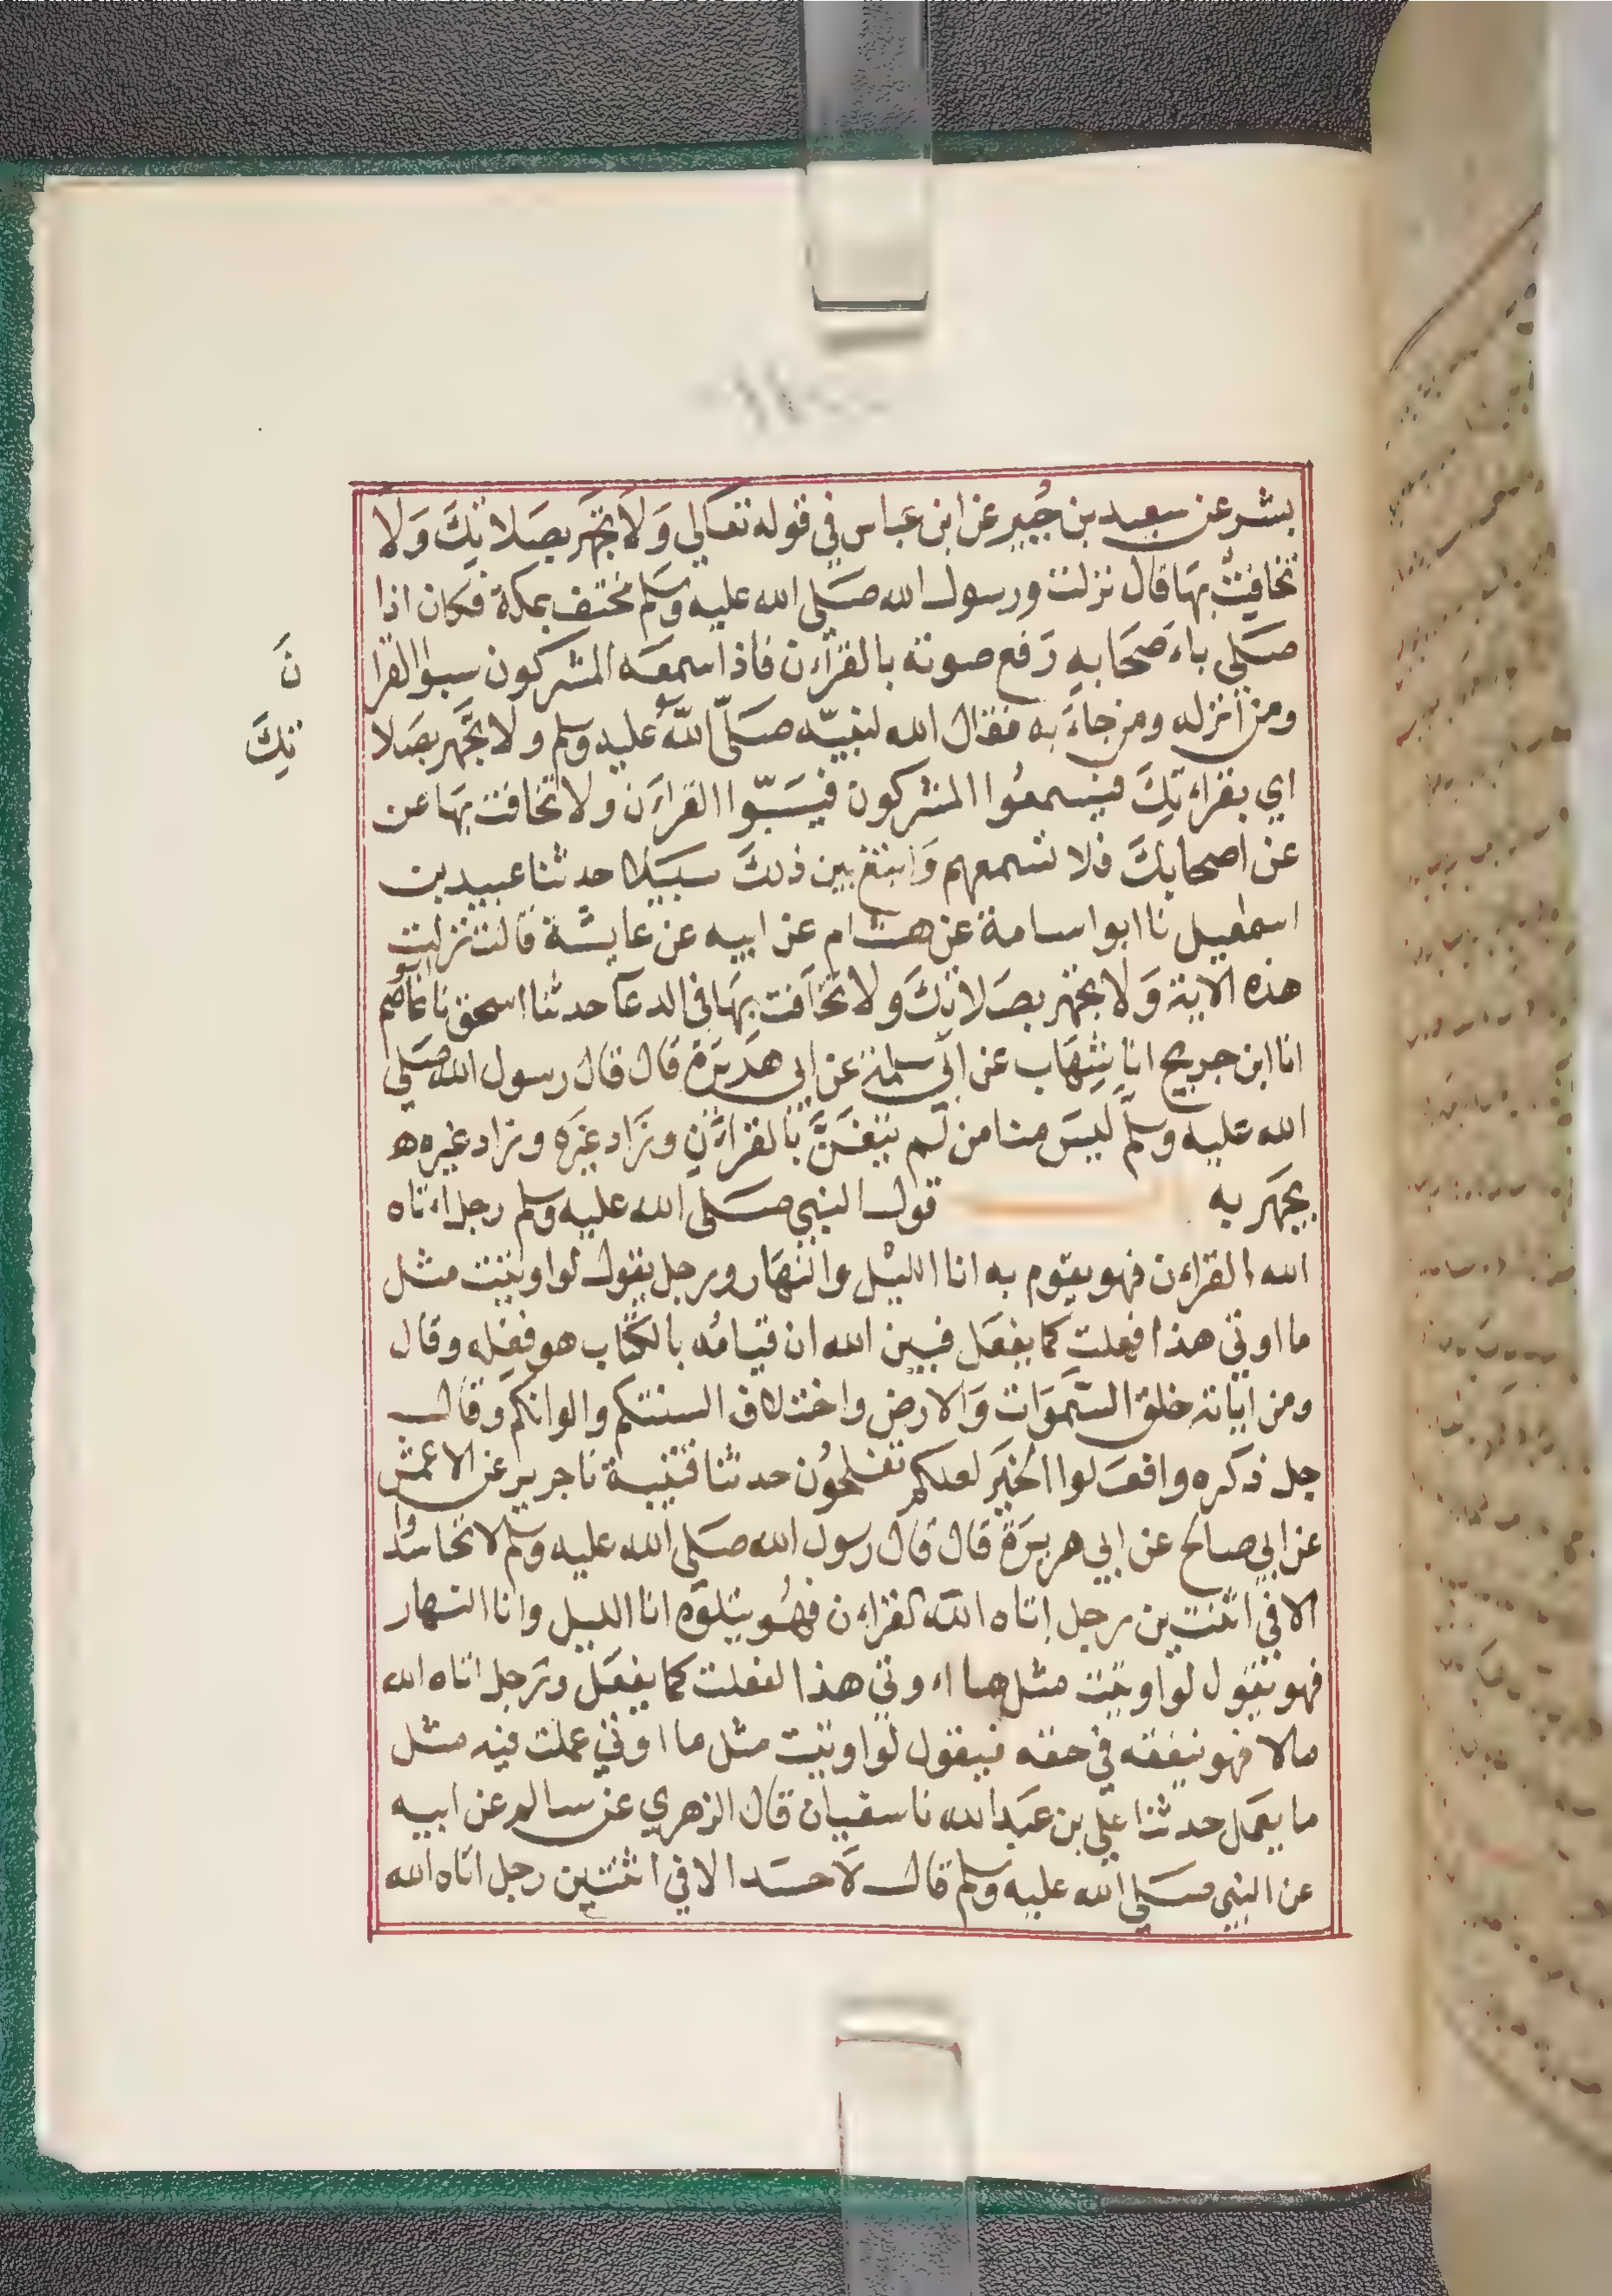 بشر عن سعيد بن جُبير عن ابن عباس في قوله تعالي وَلَا تجْهَر بصَلاتِكَ وَلا
تخافِتْ بهَا قال نزلت ورسول الله صَلي الله عليه وسلم مختف بمكة فكان اذا
صَلي باءَصْحَابِهِ رَفع صوته بالقرآءن فاذا سمعَه المشركون سبوا القرا
نَ
ومن أنزله ومن جاءَ به فقال الله لنبيّه صَلّى اللّهُ عليه وسلم ولا تجَّهر بصَلا
تِكَ
اي بقراءتِكَ فيسمعُوا المشركون فيَسَبّوا القراءَن ولا تخافت بهَا عن
عن اصحابِكَ فلا تسمعهم وَابتغ بين ذلكَ سبَيلا حدثنا عبيد بن
اسمٰعيل نا ابو اسامة عن هشام عن ابيه عن عايشَة قالت نزلت
هذه الاية وَلا تجهر بصَلاتِكَ ولا تخَافت بِهَا في الدعآ حدثنا اسحق نا ابو عاصم
انا ابن جريج انا شِهَاب عن ابي سلمة عن ابي هدَيرَة قال قال رسول الله صَلي
الله عليه وسلّم ليسَ منا من لَم يتغَنَّ بالقراءَنِ وزَاد غيَرَه وزاد غيره ه
يجهَر به قول النبي صَلى الله عليه وسلم رجل اءتاه
الله القراءن فهو يقوم به انا الليْل والنهَار ورجل يقول لو اوتيت مثل
ما اوتي هذا فعلت كما يفعَل فبين الله ان قيامُه بالكتاب هو فعِله وقال
ومن اياته خلق السَّموَات وَالارض واختلاف السنتكم والوانكم وَقال
جل ذكره وافعَلوا الخيَر لعلكم تفلحُون حدثنا قتيبة نا جرير عن الاعمش
عن ابي صالح عن ابي هريرَة قال قال رسول الله صَلي الله عليه وسلم لا تحاسدُوا
الا في اثنتين رجل اتاه اللّه القراءن فهُو يتلوَه انا الليل وانا النهار
فهو يقوَل لو اوتيت مثل ما اءوتي هذا لفعلت كما يفعَل ورَجل اتاه الله
مالا فهو ينفقه في حقه فيقول لو اوتيت مثل ما اوتي عملت فيه مثل
ما يعمَل حدثنا علي بن عَبد الله نا سفيان قال الزهري عن سالم عن ابيه
عن النبي صَلي الله عليه وسلم قال لَا حسَد الا في اثنتين رجل اتاه الله